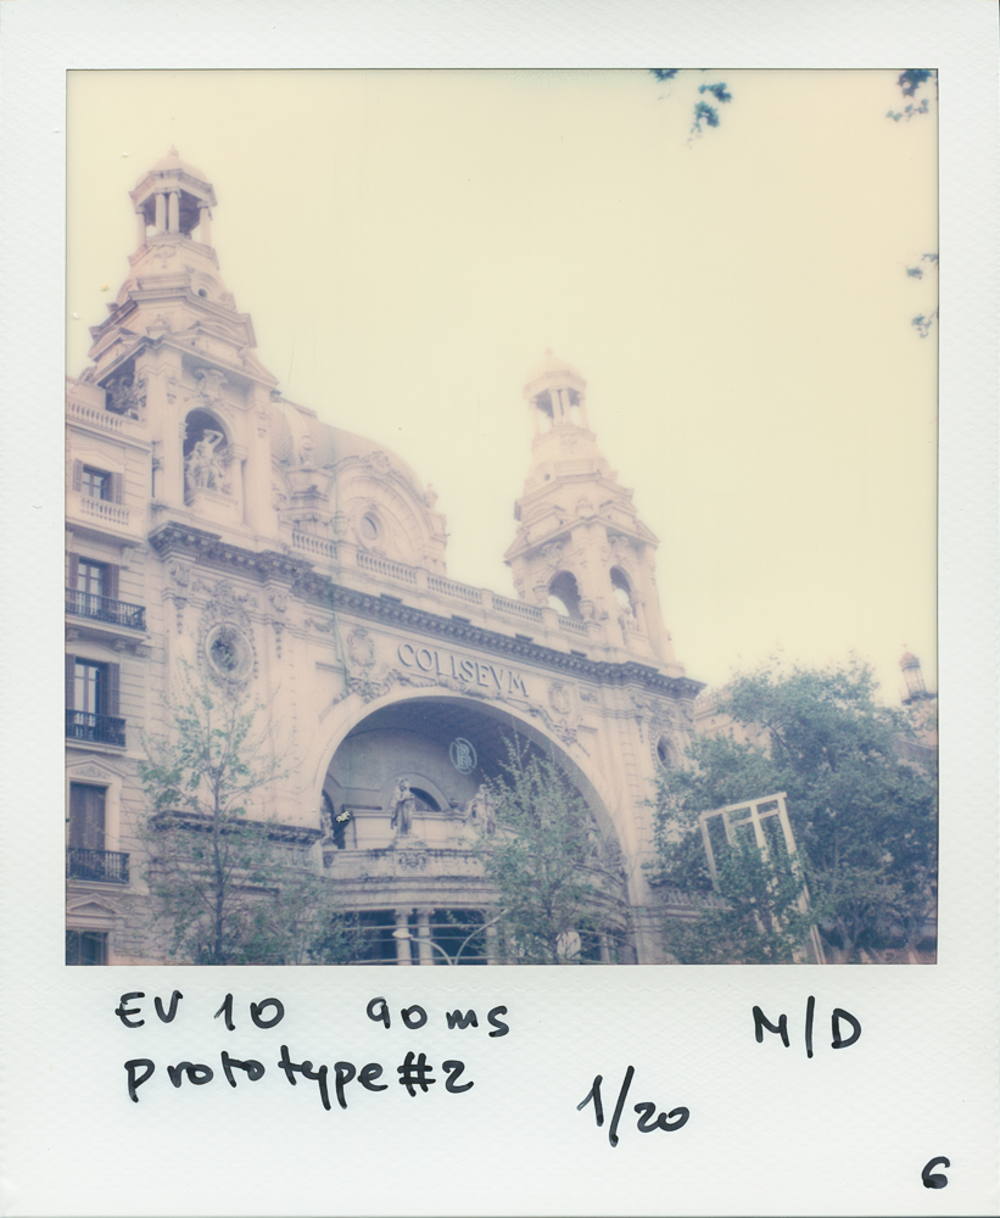 COLISEVM
EV 10 90ms M/D
prototype#2
1/20
6